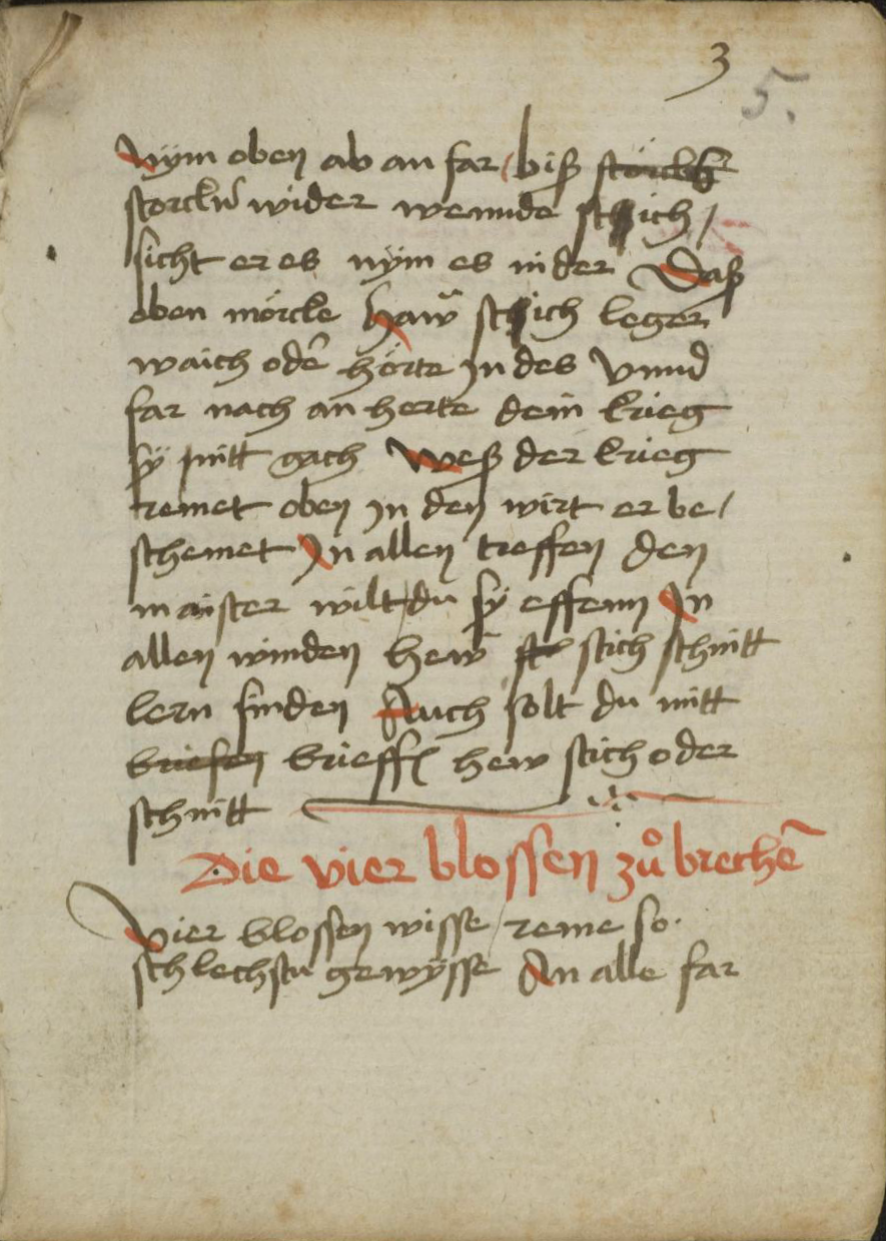 3
5.
Nÿm oben ab an far / biß störckß
storckeñ wider wennde stich /
sicht er es nÿm es in der Daß
eben mörcke haw̃ stich leger
waich odẽ hörte In des Vnnd
far nach an herte dein krieg
sÿ nitt gach Weß der krieg
remet oben In den wirt er be /
schemet In allen treffen den
maister wilt du sÿ effenn In
allen winden hew̃ st stich schnitt
lern finden Auch solt du mitt
briefen brieffen hew stich oder
schnitt
Die vier blossen zů brechẽ
Vier blossen wisse / reme so
schlechstu gewÿsse An alle far